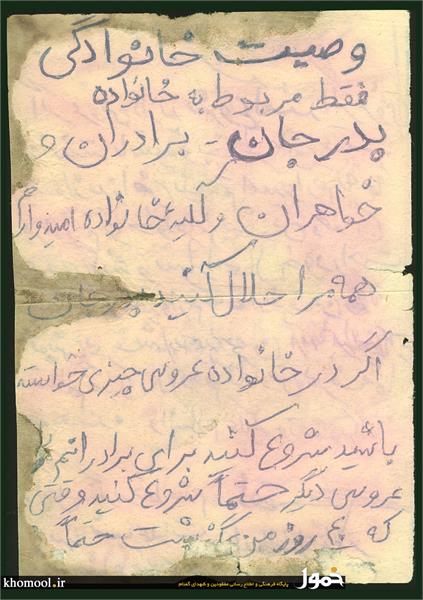 وصیت خانوادگی
فقط مربوط به خانواده
پدر جان - برادران و
خواهران و کلیه خانواده امیدوارم
همه مرا حلال کنید پدر جان
اگر در خانواده عروسی چیزی خواسته
باشید شروع کنید برای برادرانم
عروسی دیگر حتماً شروع کنید وقتی
که روز من گذشت حتماً
خمول
پایگاه فرهنگی و اطلاع رسانی مفقودین و شهدای گمنام
khomool.ir